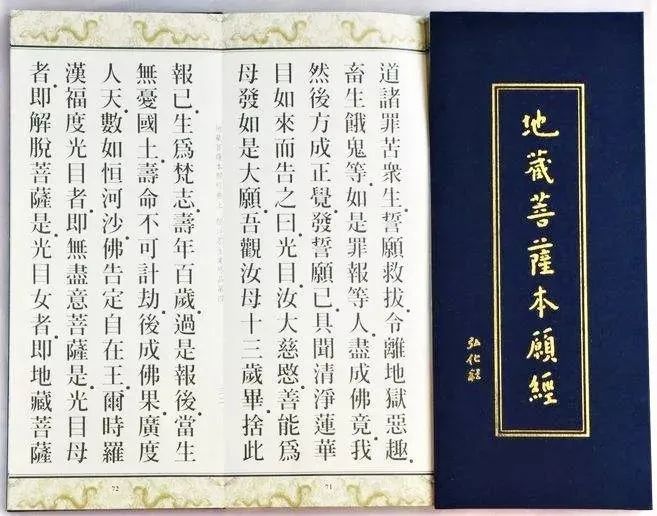 地藏菩薩本願經
弘化社
道諸罪苦衆生。誓願救拔。令離地獄惡趣
畜生餓鬼等。如是罪報等人。盡成佛竟。我
然後方成正覺。發誓願已。具聞清淨蓮華
目如來而告之曰。光目。汝大慈愍。善能爲
母發如是大願。吾觀汝母十三歲畢。捨此
71
報已。生爲梵志。壽年百歲。過是報後。當生
無憂國土。壽命不可計劫。後成佛果。廣度
人天。數如恒河沙。佛告定自在王。爾時羅
漢福度光目者。即無盡意菩薩是。光目母
者。即解脫菩薩是。光目女者。即地藏菩薩
72